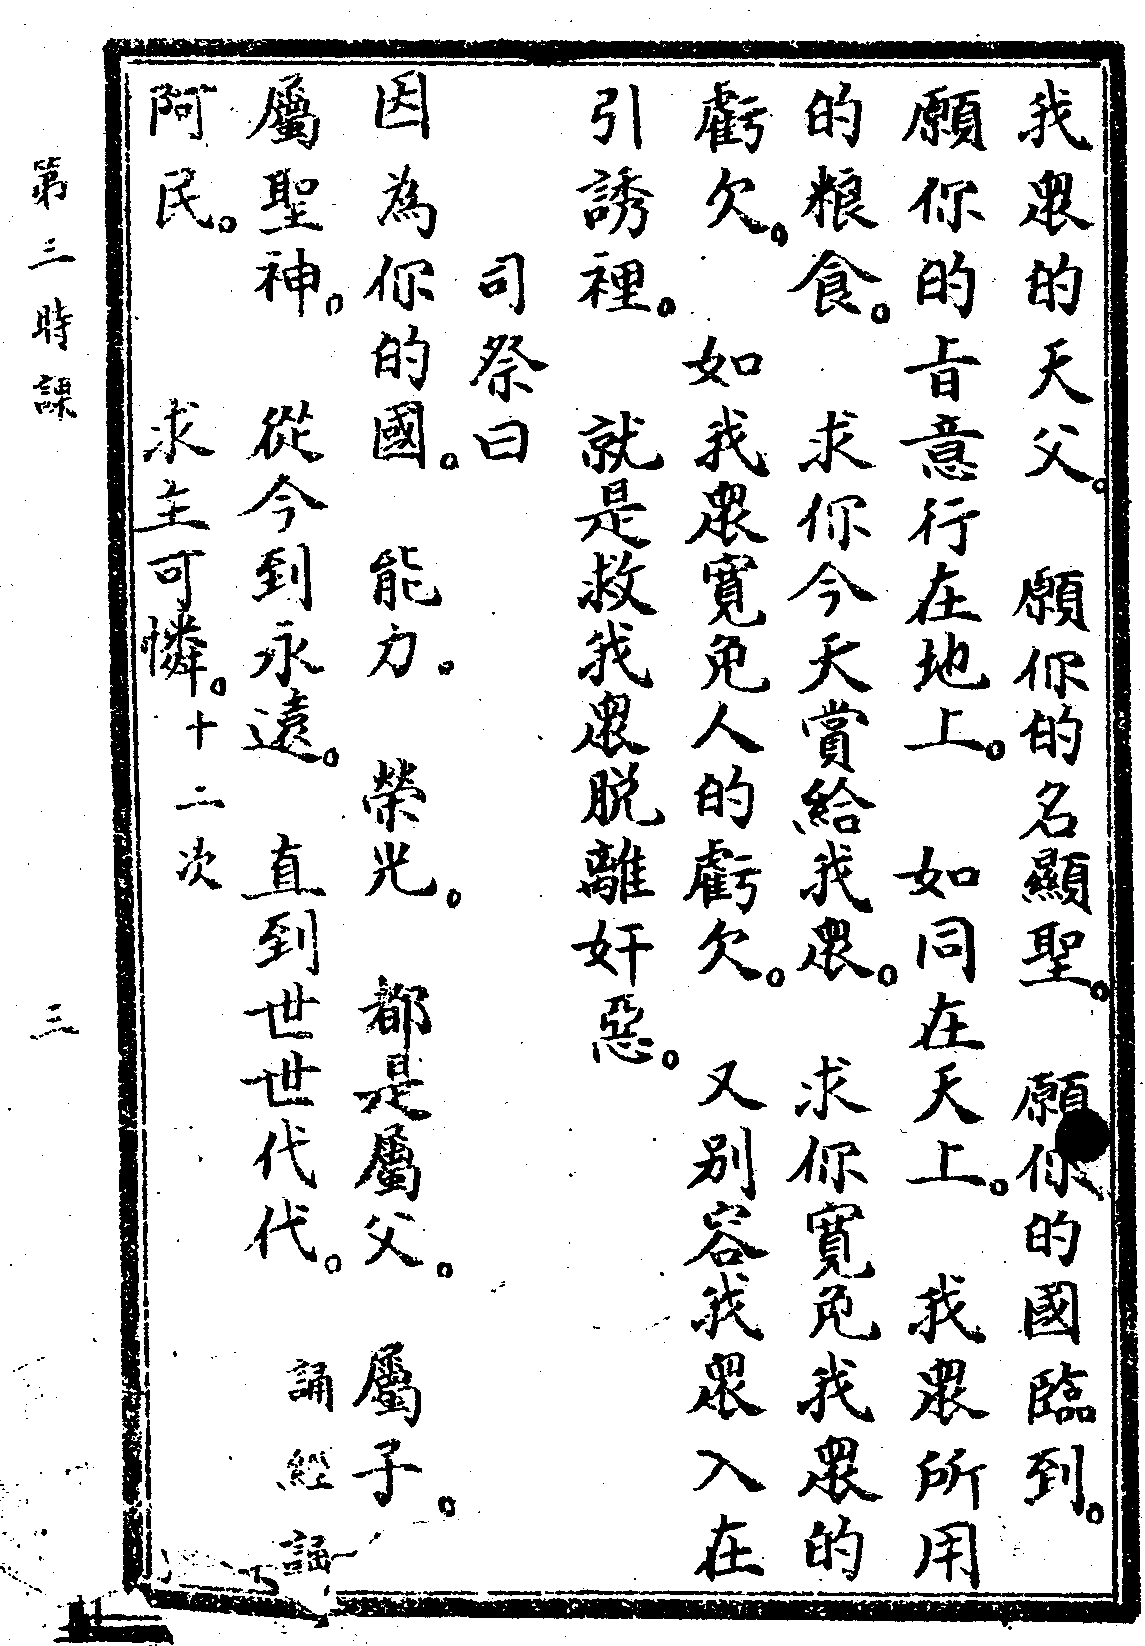 我眾的天父。願你的名顯聖。願你的國臨到。
願你的旨意行在地上。如同在天上。我眾所用
的粮食。求你今天賞給我眾。求你寬免我眾的
虧欠。如我眾寬免人的虧欠。又別容我眾入在
引誘裡。就是救我眾脱離奸惡。
司祭曰
因為你的國。能力。榮光。都是屬父。屬子。
屬聖神。從今到永遠。直到世世代代。誦經誦
阿民。求主可憐。十二次
第三時課 三